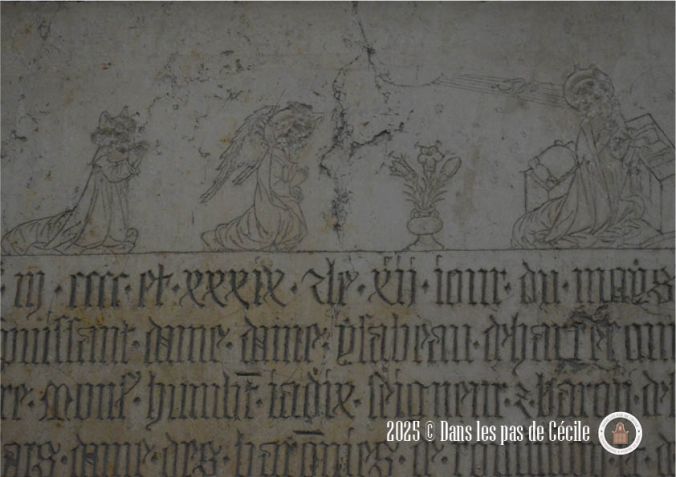 cccc · et · xxxix · ⁊ le · xij · iour · du · moys
puissant · dame · dame · ysabeau ·
mons · humbt · iadix · seigneur · ⁊ baron · de
dame · des · baronies · de
2025 © Dans les pas de Cécile